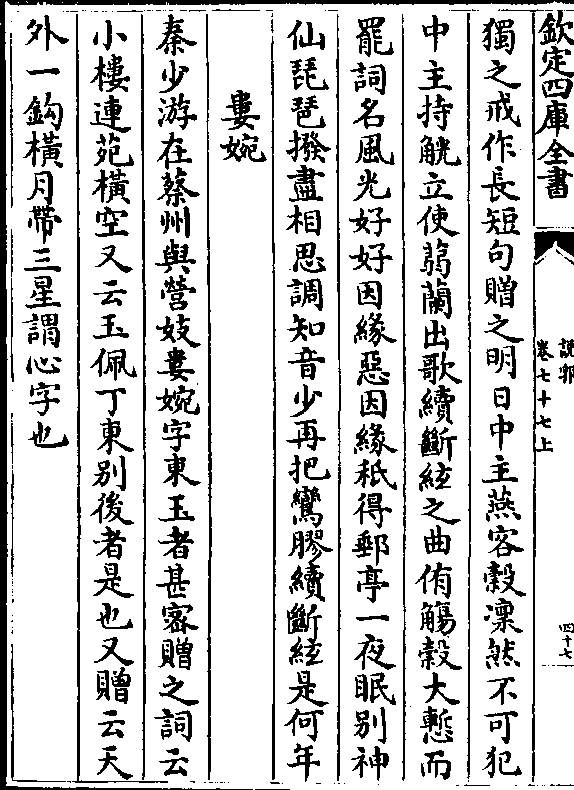 欽定四庫全書
說郛
卷七十七上
四十七
獨之戒作長短句贈之明日中主燕客穀凜然不可犯
中主持觥立使蒻蘭出歌續斷絃之曲侑觴穀大慙而
罷詞名風光好好因緣惡因緣秖得郵亭一夜眠别神
仙琵琶撥盡相思調知音少再把鸞膠續斷絃是何年
婁婉
秦少游在蔡州與營妓婁婉字東玉者甚宻贈之詞云
小樓連苑橫空又云玉佩丁東别後者是也又贈云天
外一鈎橫月帶三星謂心字也